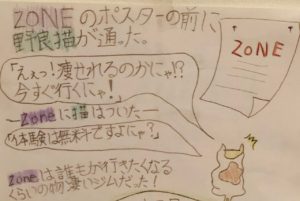 ZONEのポスターの前に
野良猫が通った。
ZONE
「ええっ!痩せれるのかにゃ!?
今すぐ行くにゃ!」
―Zoneに猫はついた―
「体験は無料ですよにゃ?」
Zoneは誰もが行きたくなる
くらいの物凄いジムだった!